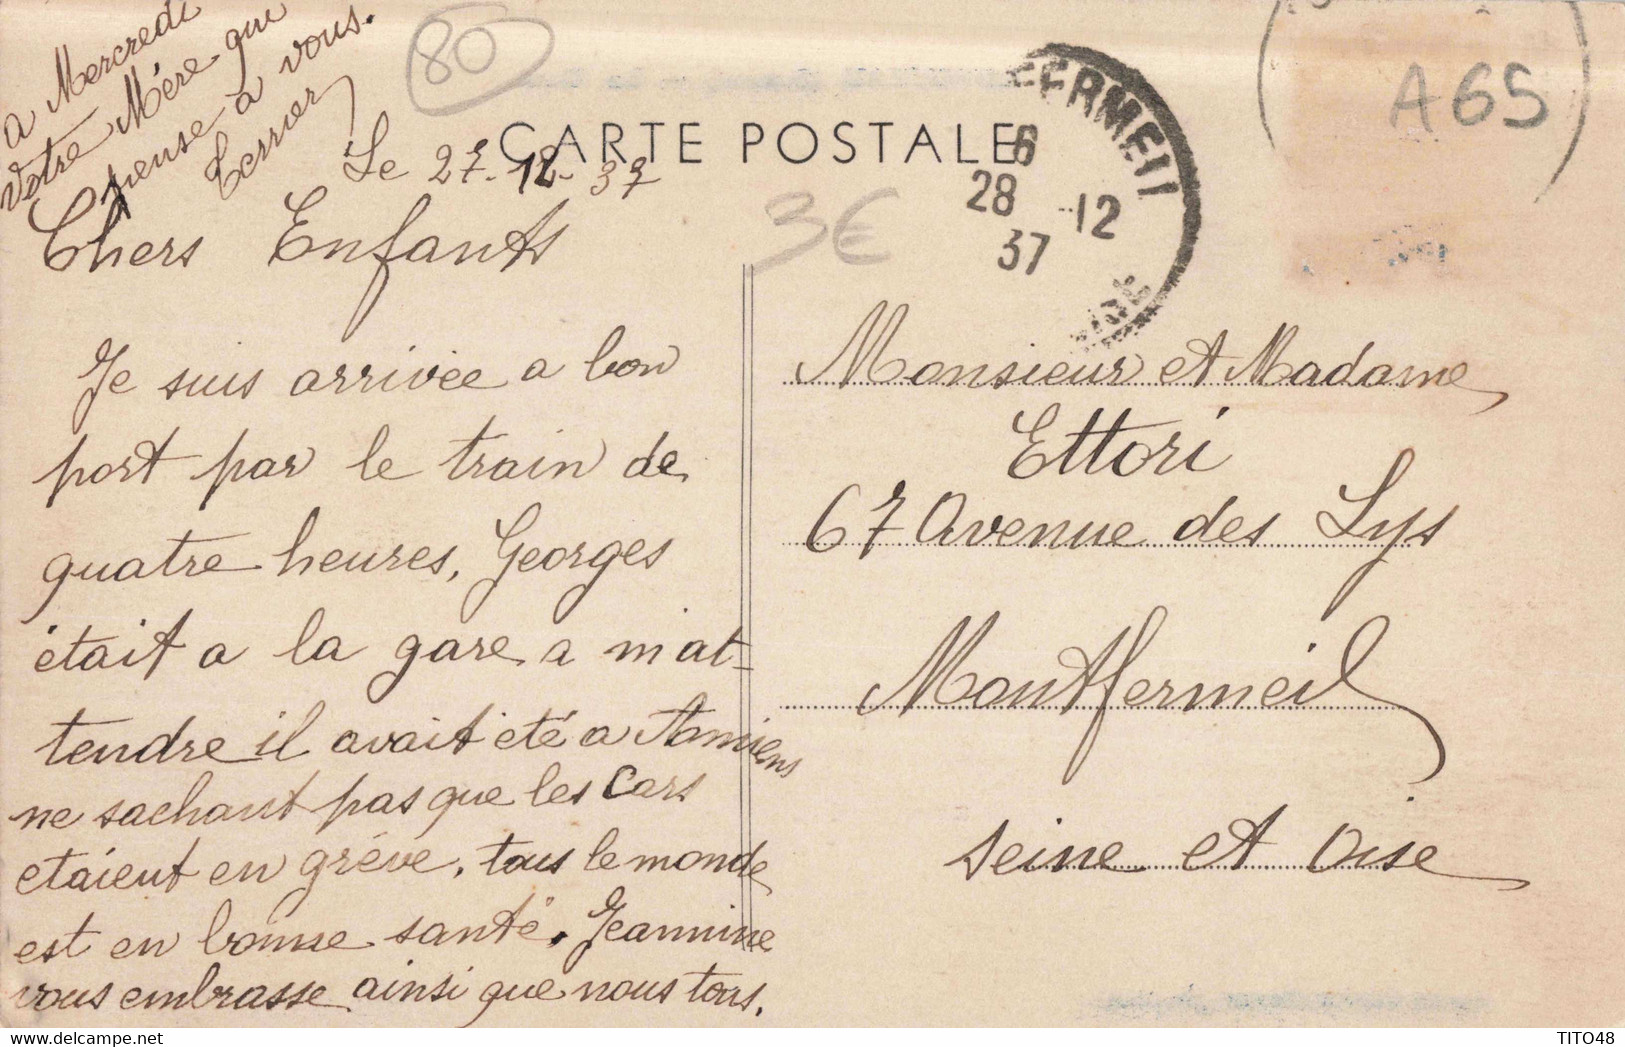 a Mercredi
Votre Mère qui
pense a vous.
Terrier
80
CARTE POSTALE
Le 27-12-37
3€
FERMEIL
6
28 -12
37
A65
Chers Enfants
Je suis arrivée a bon
port par le train de
quatre heures, Georges
était a la gare a m'at-
tendre il avait eté a Amiens
ne sachant pas que les cars
etaient en grève, tous le monde
est en bonne santé, Jeannine
vous embrasse ainsi que nous tous.
Monsieur et Madame
Ettori
67 Avenue des Lys
Montfermeil
Seine et Oise
TITO48